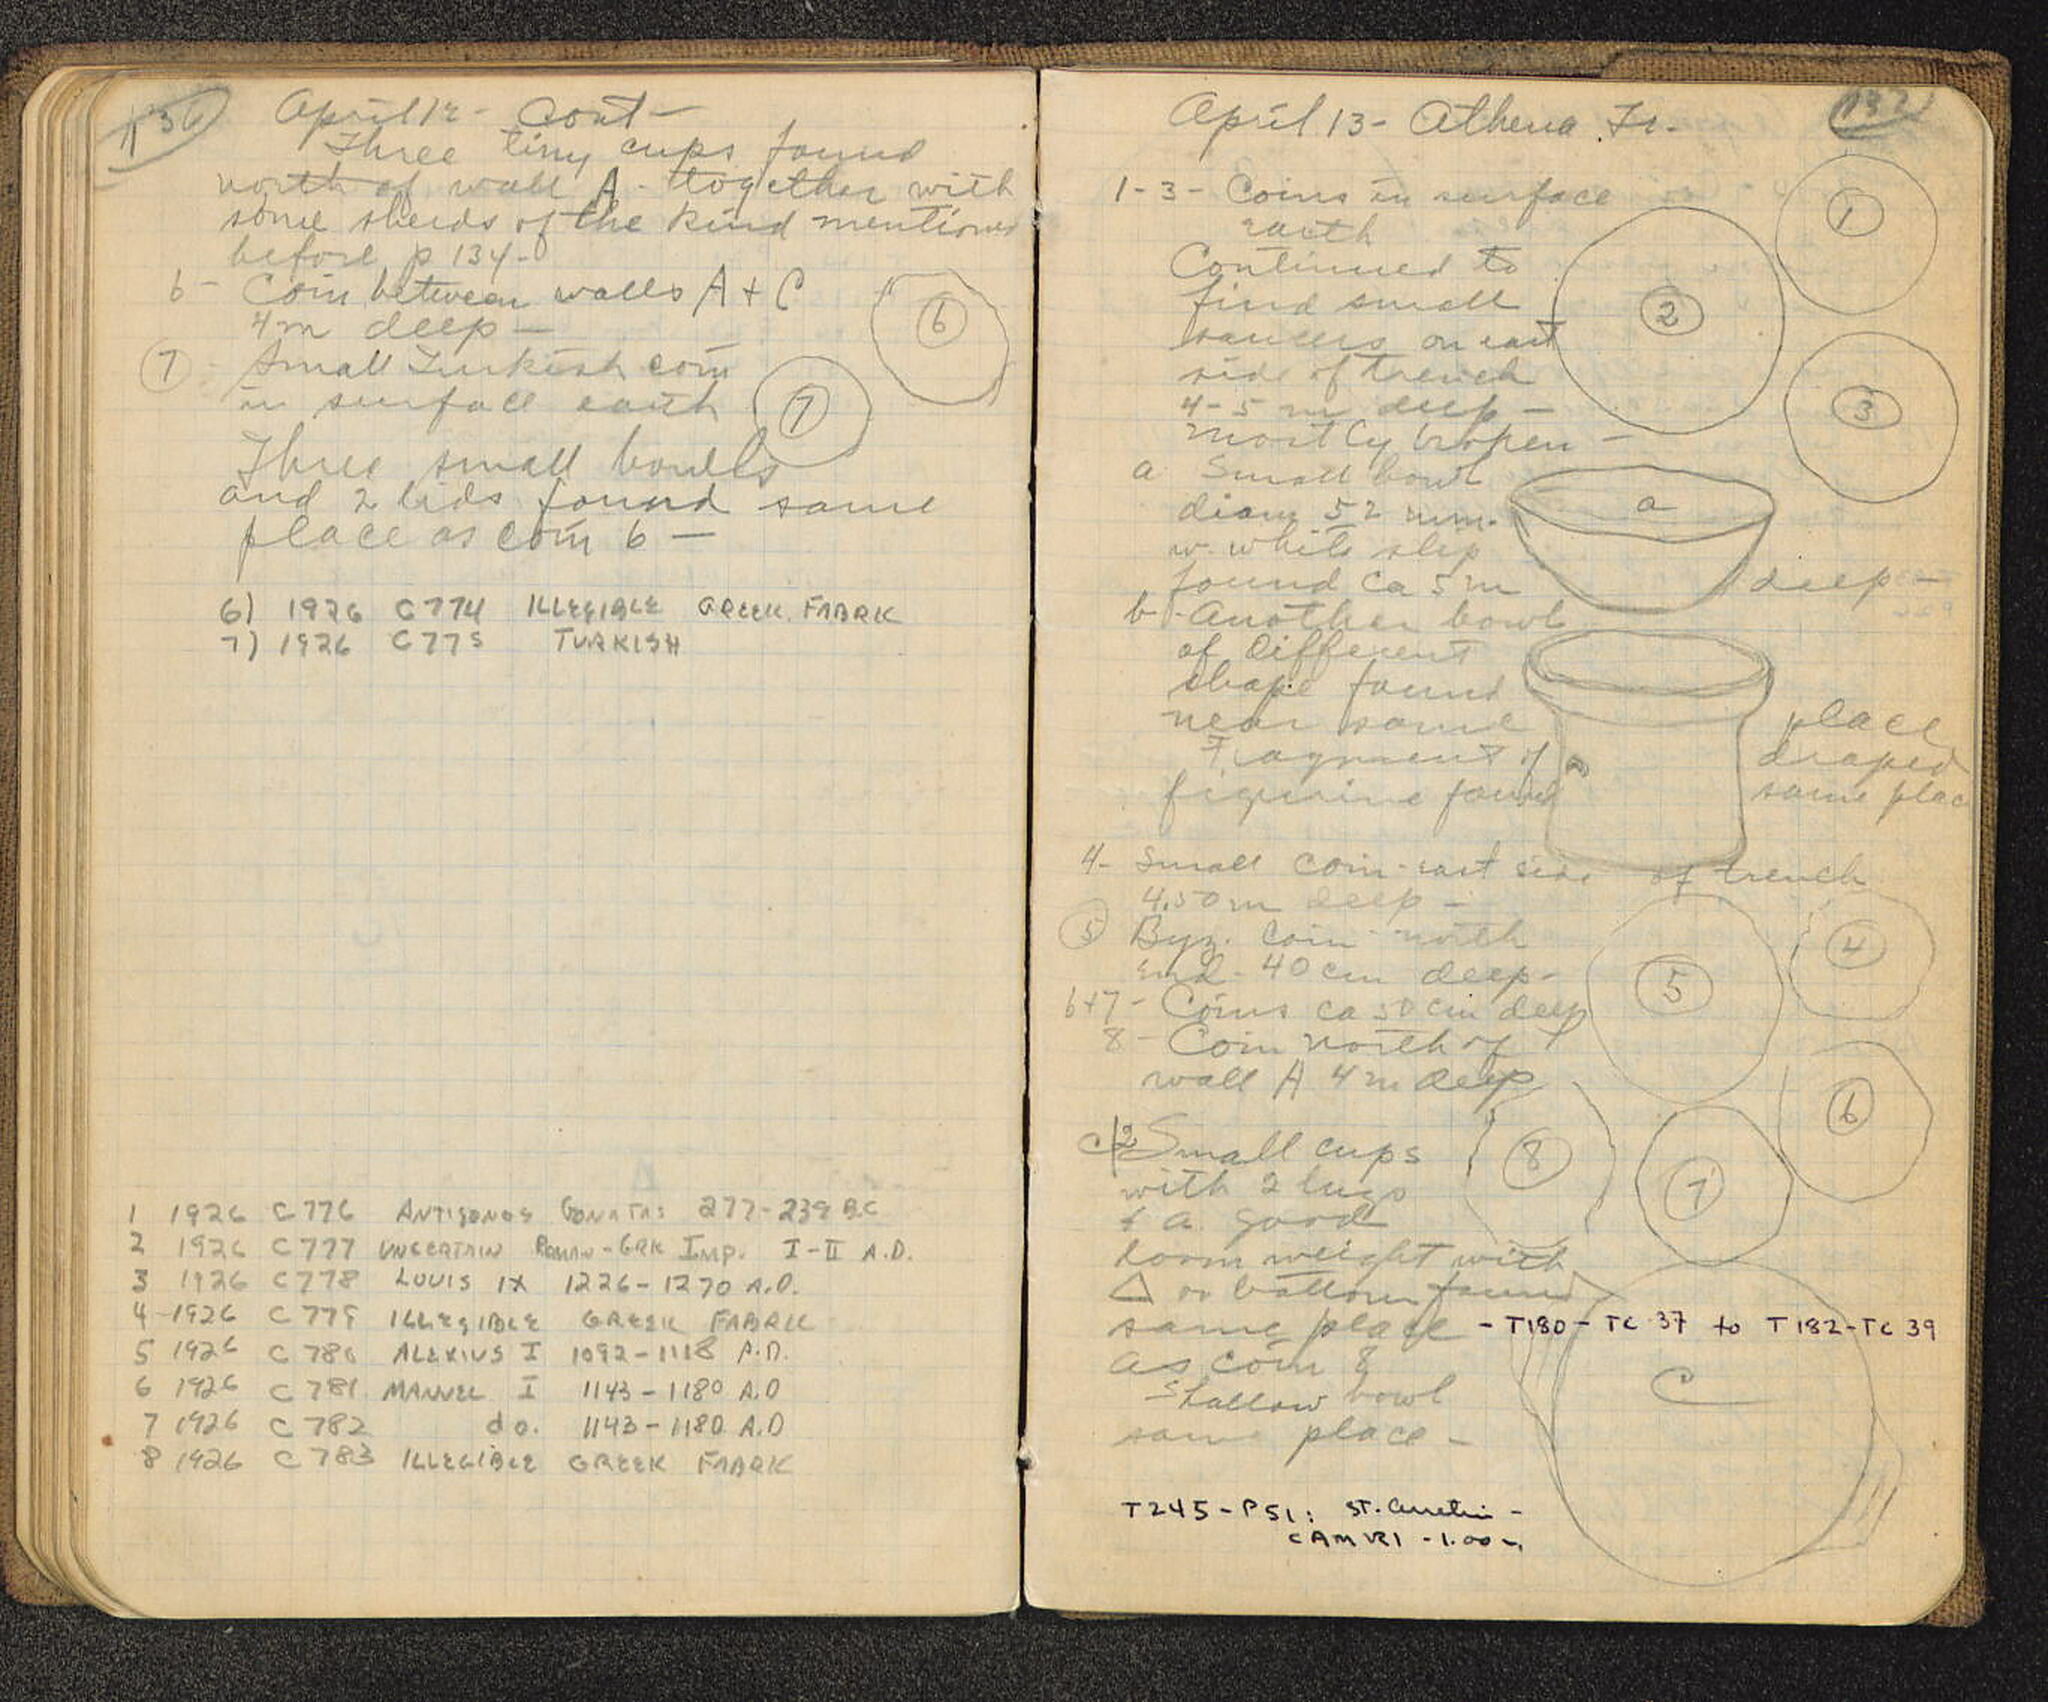 136
April 12 - Cont -
Three tiny cups found
north of wall A - together with
some sherds of the kind mentioned
before p 134 -
6 - Coin between walls A + C
4 m deep -
6
7 - Small Turkish coin
in surface earth
7
Three small bowls
and 2 lids found same
place as coin 6 -
6) 1926 C774 ILLEGIBLE GREEK FABRK
7) 1926 C775 TURKISH
1 1926 C776 ANTIGONOS GONATAS 277-239 B.C
2 1926 C777 UNCERTAIN ROMAN-GRK IMP. I-II A.D.
3 1926 C778 LOUIS IX 1226-1270 A.D.
4 - 1926 C779 ILLEGIBLE GREEK FABRK
5 1926 C780 ALEXIUS I 1092-1118 A.D.
6 1926 C781 MANUEL I 1143-1180 A.D
7 1926 C782 do. 1143-1180 A.D
8 1926 C783 ILLEGIBLE GREEK FABRK
137
April 13 - Athena Tr.
1-3 - Coins in surface
earth
1
2
3
Continued to
find small
saucers on east
side of trench
4-5 m deep -
mostly broken -
a Small bowl
diam 52 mm.
w. white slip
found ca 5 m deep -
a
b - Another bowl
of different
shape found
near same place
Fragment of draped
figurine found same place
4 - Small coin - east side of trench
4.50 m deep -
4
5 Byz. coin north
end - 40 cm deep -
5
6+7 - Coins ca 50 cm deep
8 - Coin north of
wall A 4 m deep
6
7
8
c/2 Small cups
with 2 lugs
+ a good
loom weight with
△ on bottom found
same place - T180 - TC 37 to T182 - TC 39
as coin 8
Shallow bowl
same place -
C
T245 - P51:
- 1.00 -